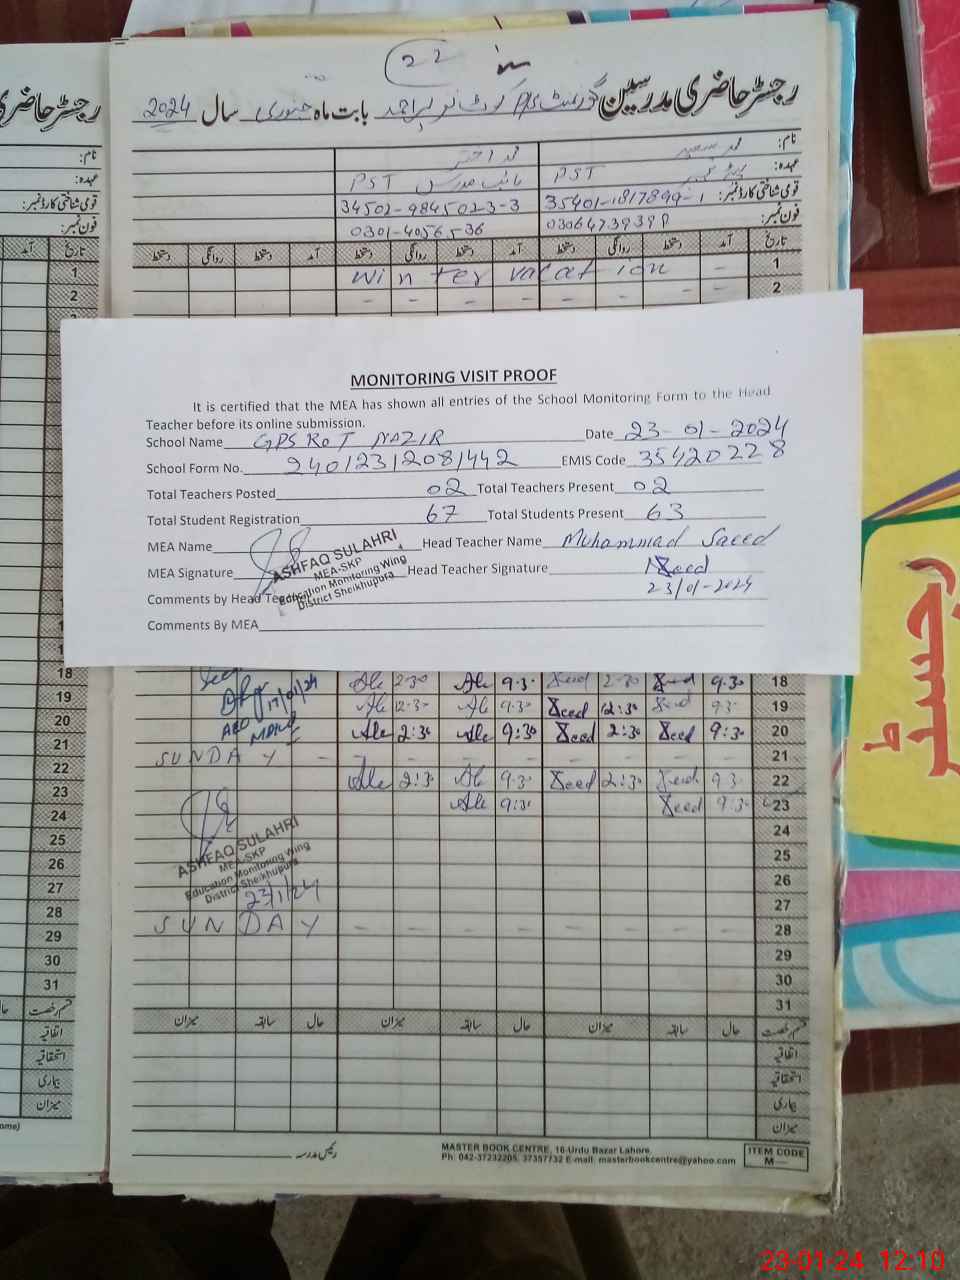 22
رجسٹر حاضری مدرسین گورنمنٹ P/S کوٹ نذیر احمد بابت ماہ جنوری سال 2024
نام: محمد سعید محمد اختر
عہدہ: PST PST
قومی شناختی کارڈ نمبر: 35401-1817899-1 34502-9845023-3
فون نمبر: 03064739398 0301-4056536
تاریخ آمد دستخط روانگی دستخط آمد دستخط روانگی دستخط آمد دستخط روانگی دستخط
1 Winter vacation
2
MONITORING VISIT PROOF
It is certified that the MEA has shown all entries of the School Monitoring Form to the Head
Teacher before its online submission.
School Name GPS KOT NAZIR Date 23-01-2024
School Form No. 24012312081442 EMIS Code 35420228
Total Teachers Posted 02 Total Teachers Present 02
Total Student Registration 67 Total Students Present 63
MEA Name Head Teacher Name Muhammad Saeed
MEA Signature Head Teacher Signature Saeed
23/01-2024
Comments by Head Teacher
Comments By MEA
ASHFAQ SULAHRI
MEA-SKP
Education Monitoring Wing
District Sheikhupura
17/01/24
AEO
2:30 9:30 2:30 9:30 18
12:30 9:30 Saeed 12:30 Saeed 9:3 19
2:30 9:30 Saeed 2:30 Saeed 9:30 20
SUNDAY 21
2:30 9:30 Saeed 2:30 Saeed 9:3 22
9:30 Saeed 9:30 23
24
ASHFAQ SULAHRI
MEA-SKP
Education Monitoring Wing
District Sheikhupura
23/1/24
25
26
27
SUNDAY 28
29
30
31
قسم رخصت حال سابقہ میزان حال سابقہ میزان حال سابقہ میزان
اتفاقیہ
استحقاقیہ
بیماری
میزان
رئیس مدرسہ
MASTER BOOK CENTRE, 16-Urdu Bazar Lahore.
Ph: 042-37232205, 37357732 E-mail: masterbookcentre@yahoo.com
ITEM CODE
M—
رجسٹر حاضری
نام:
عہدہ:
قومی شناختی کارڈ نمبر:
فون نمبر:
تاریخ آمد
1
2
18
19
20
21
22
23
24
25
26
27
28
29
30
31
قسم رخصت
اتفاقیہ
استحقاقیہ
بیماری
میزان
رجسٹر
23-01-24 12:10